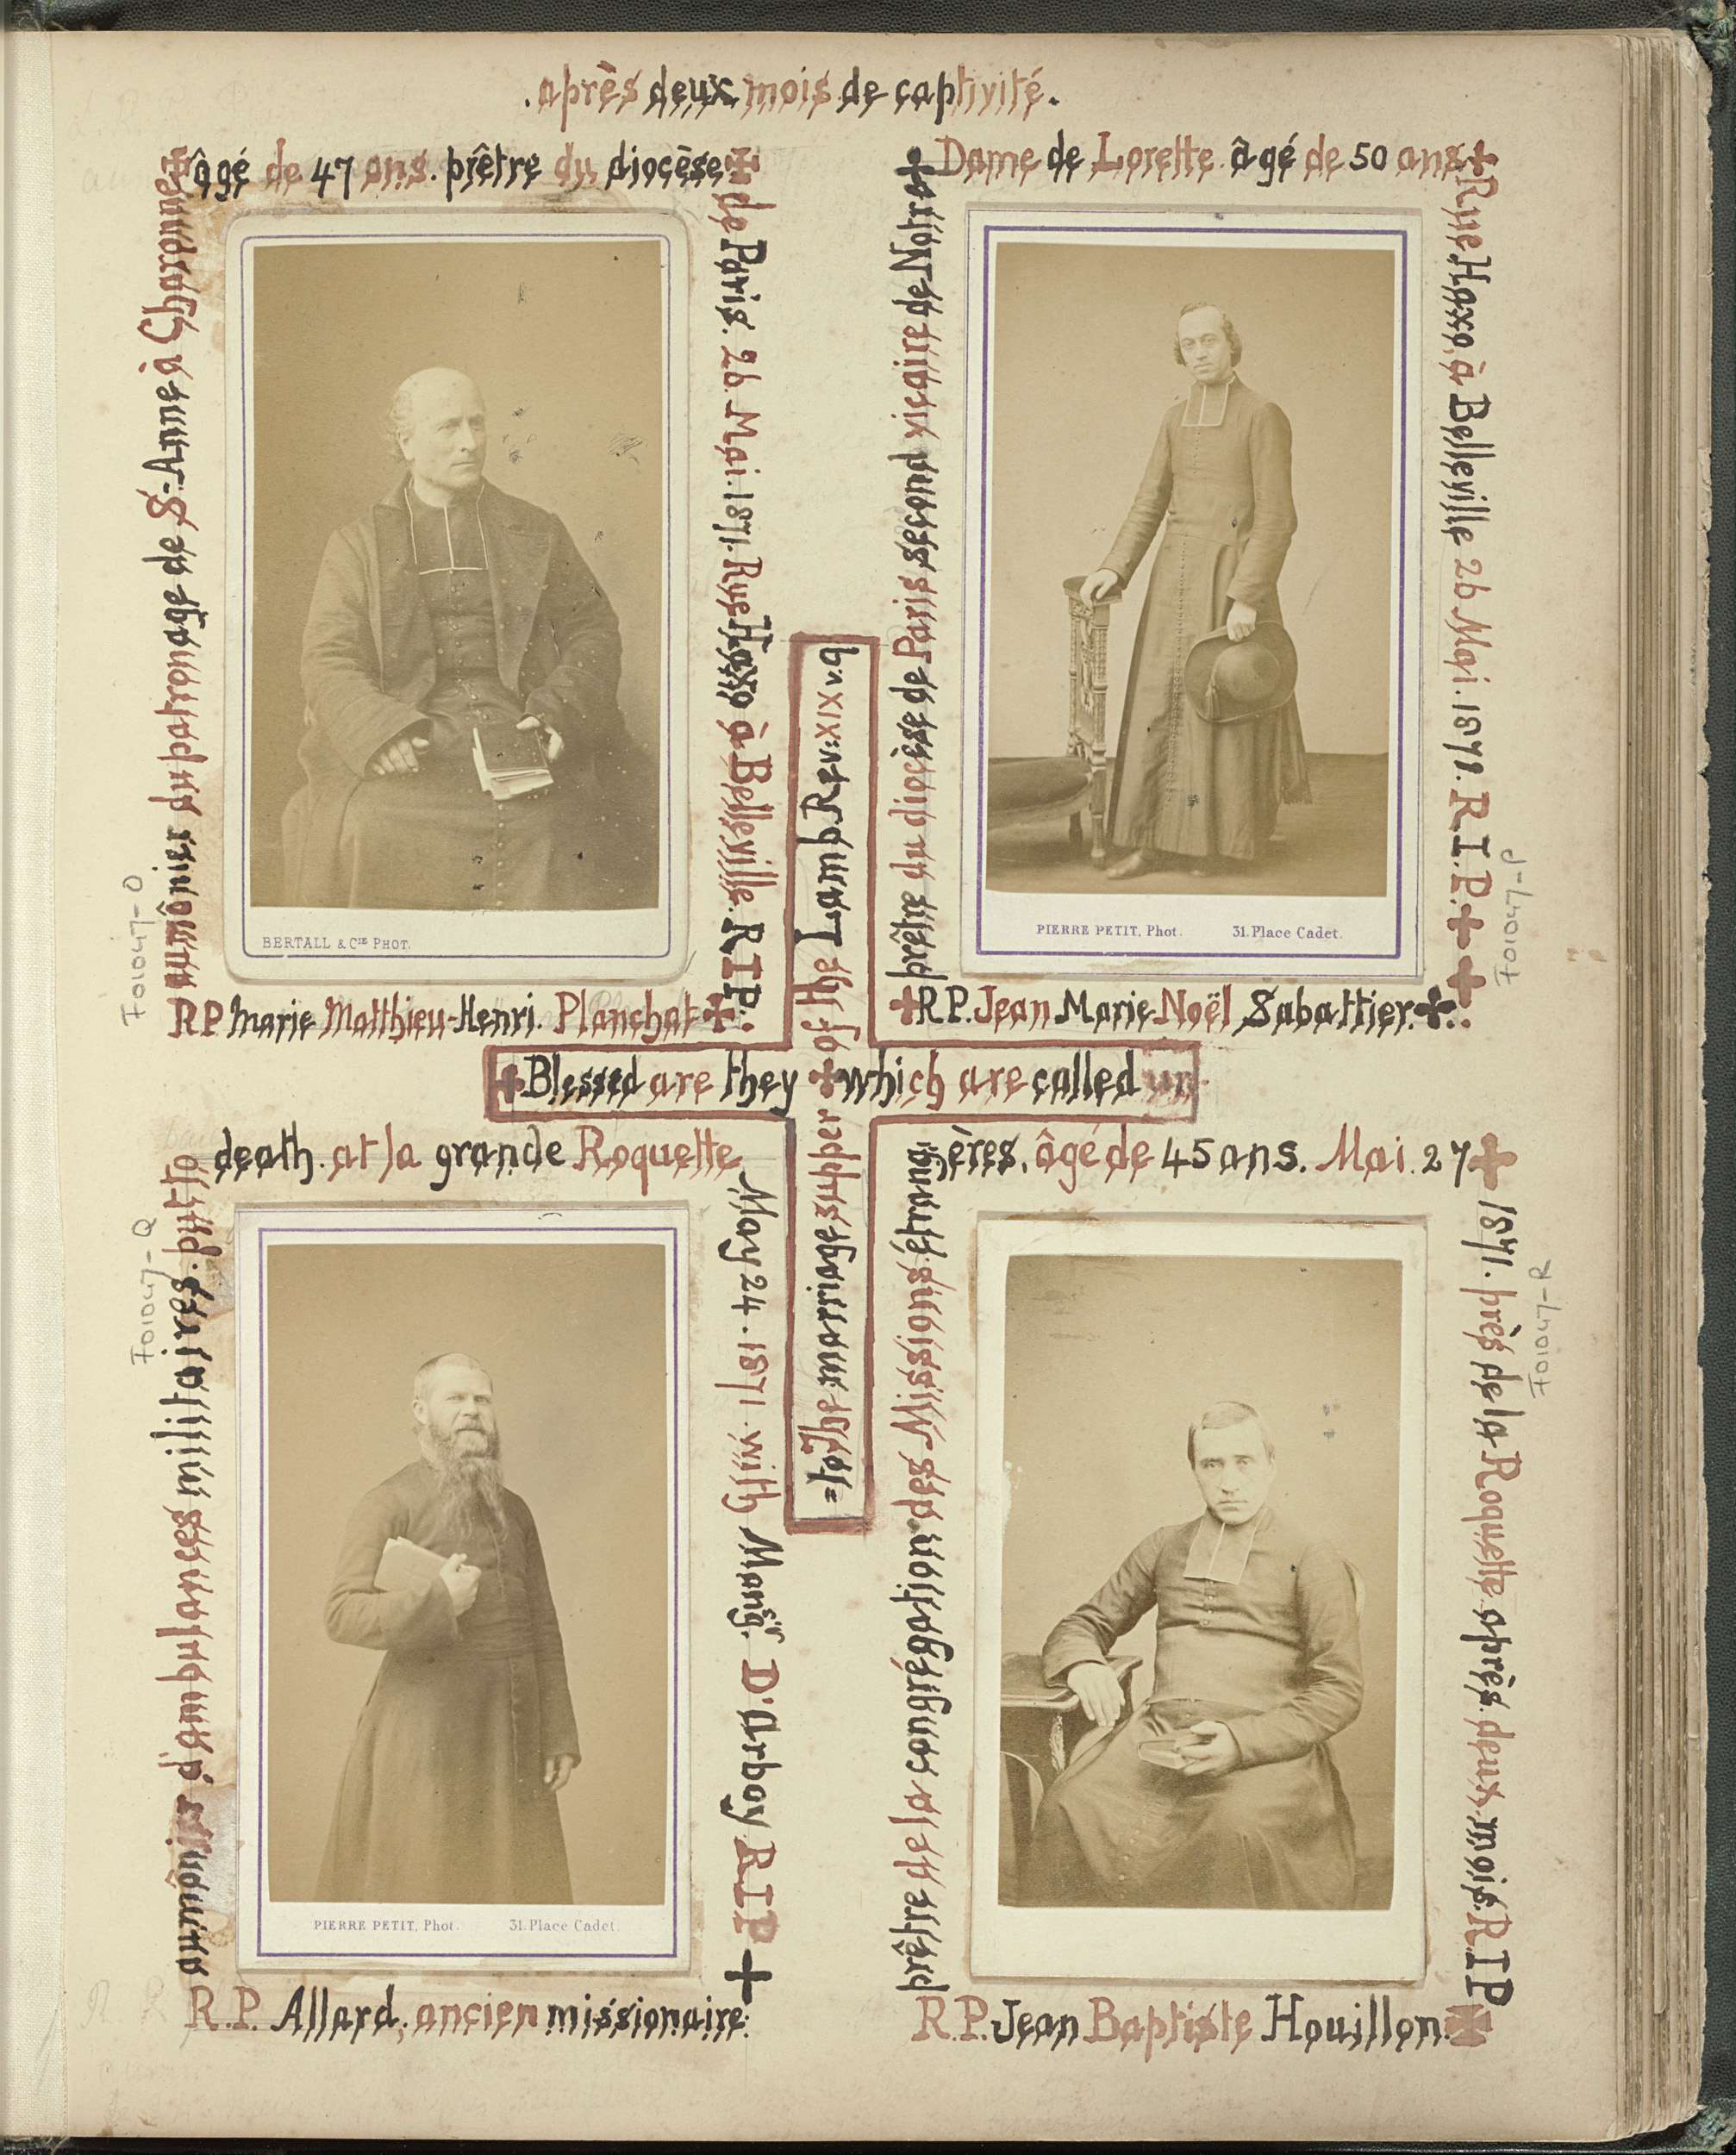 . après deux mois de captivité .
R P marie Matthieu-Henri. Planchat
aumônier du patronage de S-Anne à Charonne
âgé de 47 ans. prêtre du diocèse
de Paris. 26 Mai. 1871. Rue Haxo à Belleville. R I P.
BERTALL & CIE PHOT.
F01047-O
R.P. Jean Marie Noël Sabattier.
prêtre du diocèse de Paris second vicaire de Notre
Dame de Lorette. âgé de 50 ans
Rue Haxo, à Belleville 26 Mai. 1871. R. I. P.
PIERRE PETIT, Phot. 31. Place Cadet.
F01047-P
Blessed are they which are called un
=to The marriage supper of the Lamb Rev: XIX v. 9
R. P. Allard. ancien missionaire.
aumônier d'ambulances militaires. put to
death. at la grande Roquette
May 24. 1871. with Monsgr. D'arboy R I P
PIERRE PETIT, Phot. 31. Place Cadet.
F01047-Q
R. P. Jean Baptiste Houillon.
prêtre de la congrégation des Missions étrang
,ères, âgé de 45 ans. Mai. 27
1871. près de la Roquette après deux mois. R I P
F01047-R